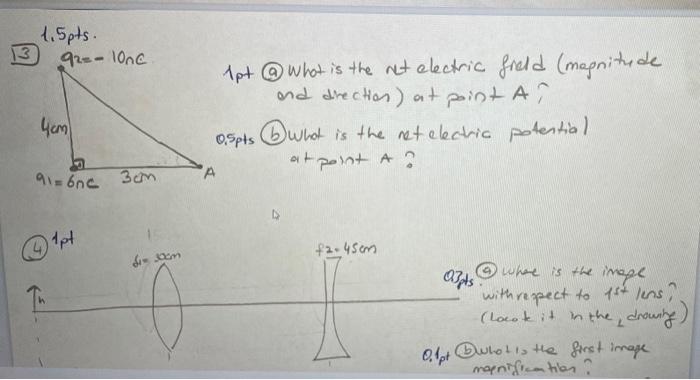 1,5pts.
3
q2=-10nC
1pt (a) What is the net electric field (magnitude
and direction) at point A?
4cm
0,5pts (b) What is the net electric potential
at point A?
q1=6nC 3cm A
4 1pt
f1=30cm
f2=45cm
h
(a) where is the image
with respect to 1st lens?
in the drawing)
0.1pt (b) what is the first image
magnification?